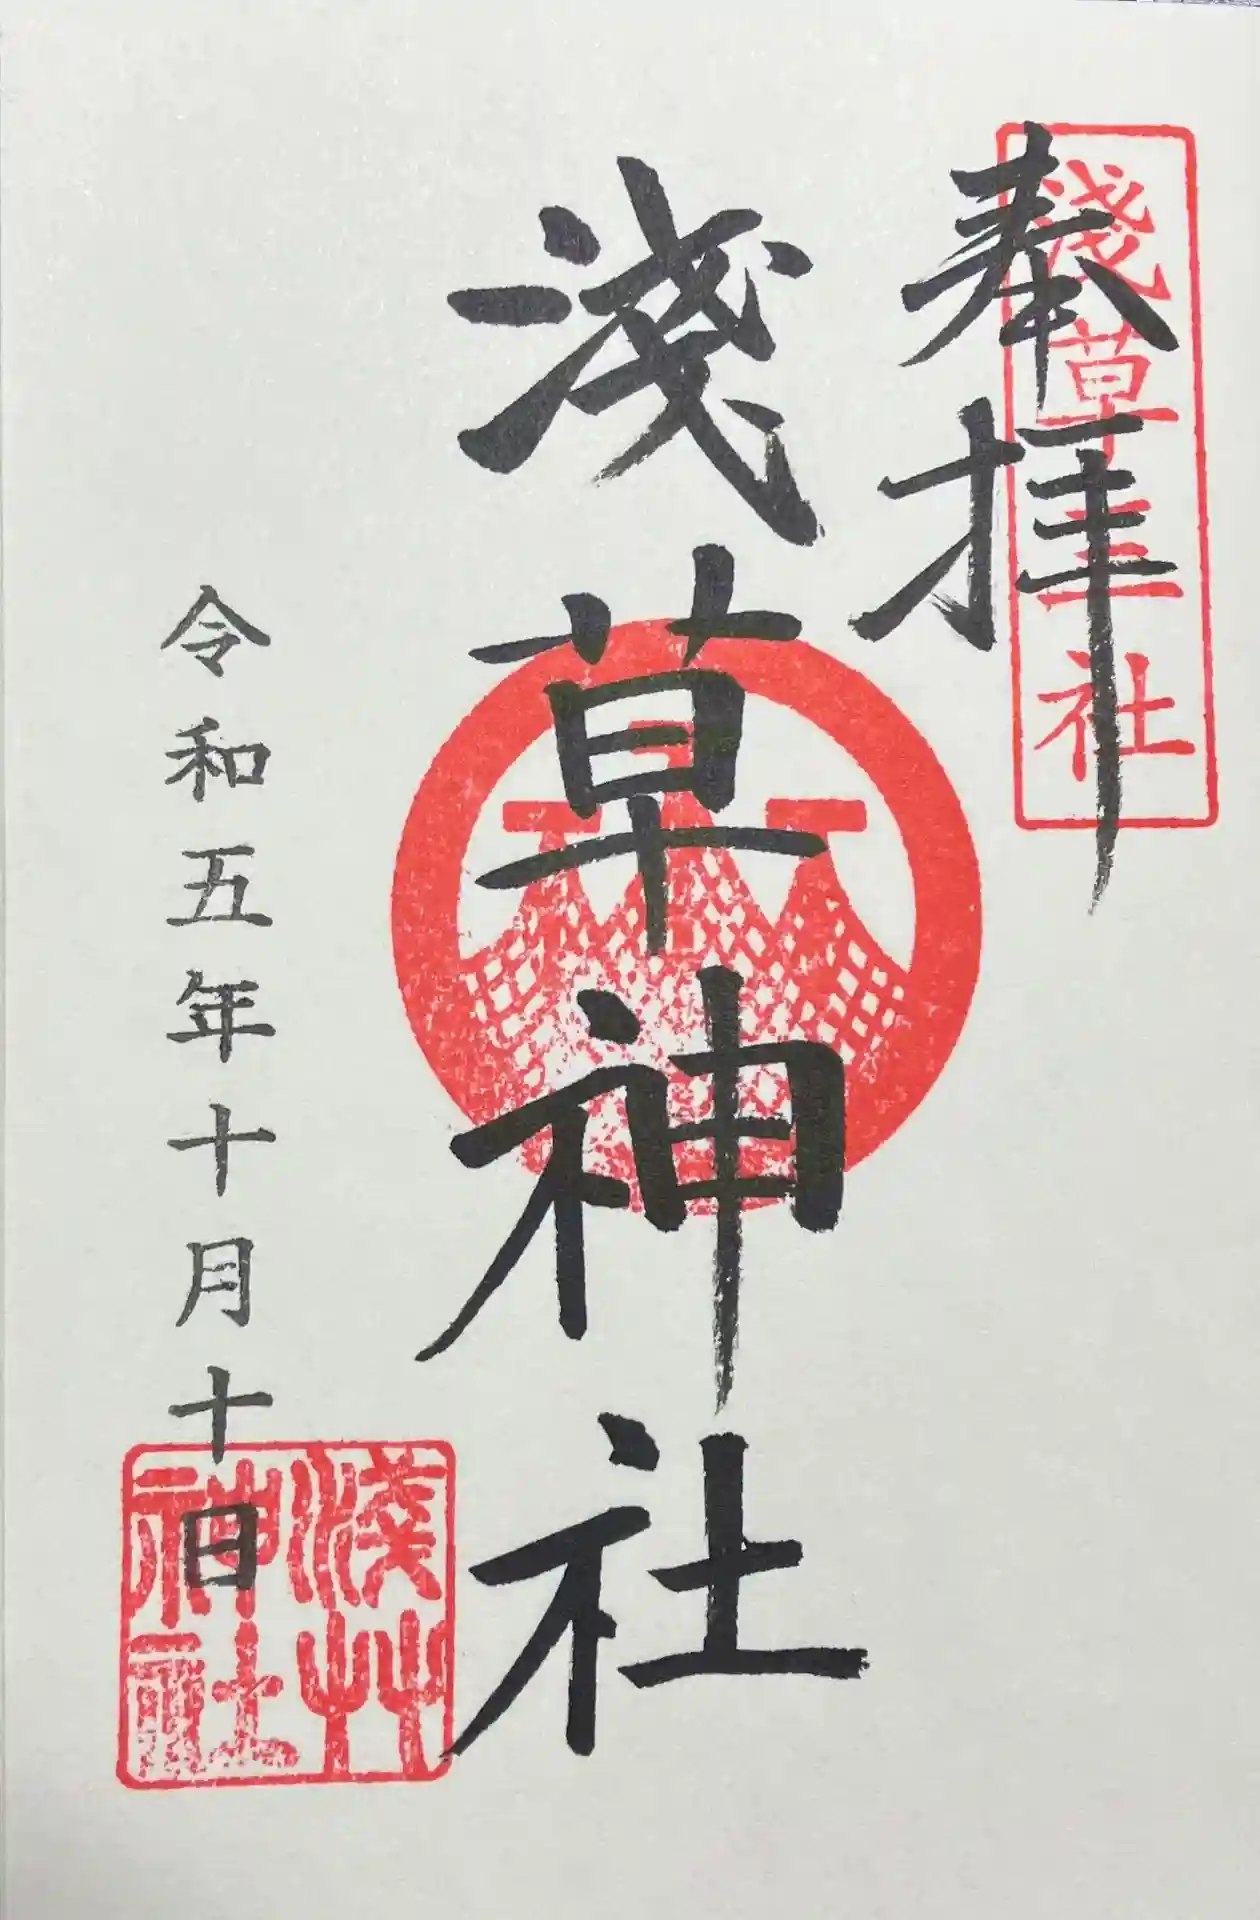 奉拝
浅草三社
淺草神社
令和五年十月十日
淺艸神社